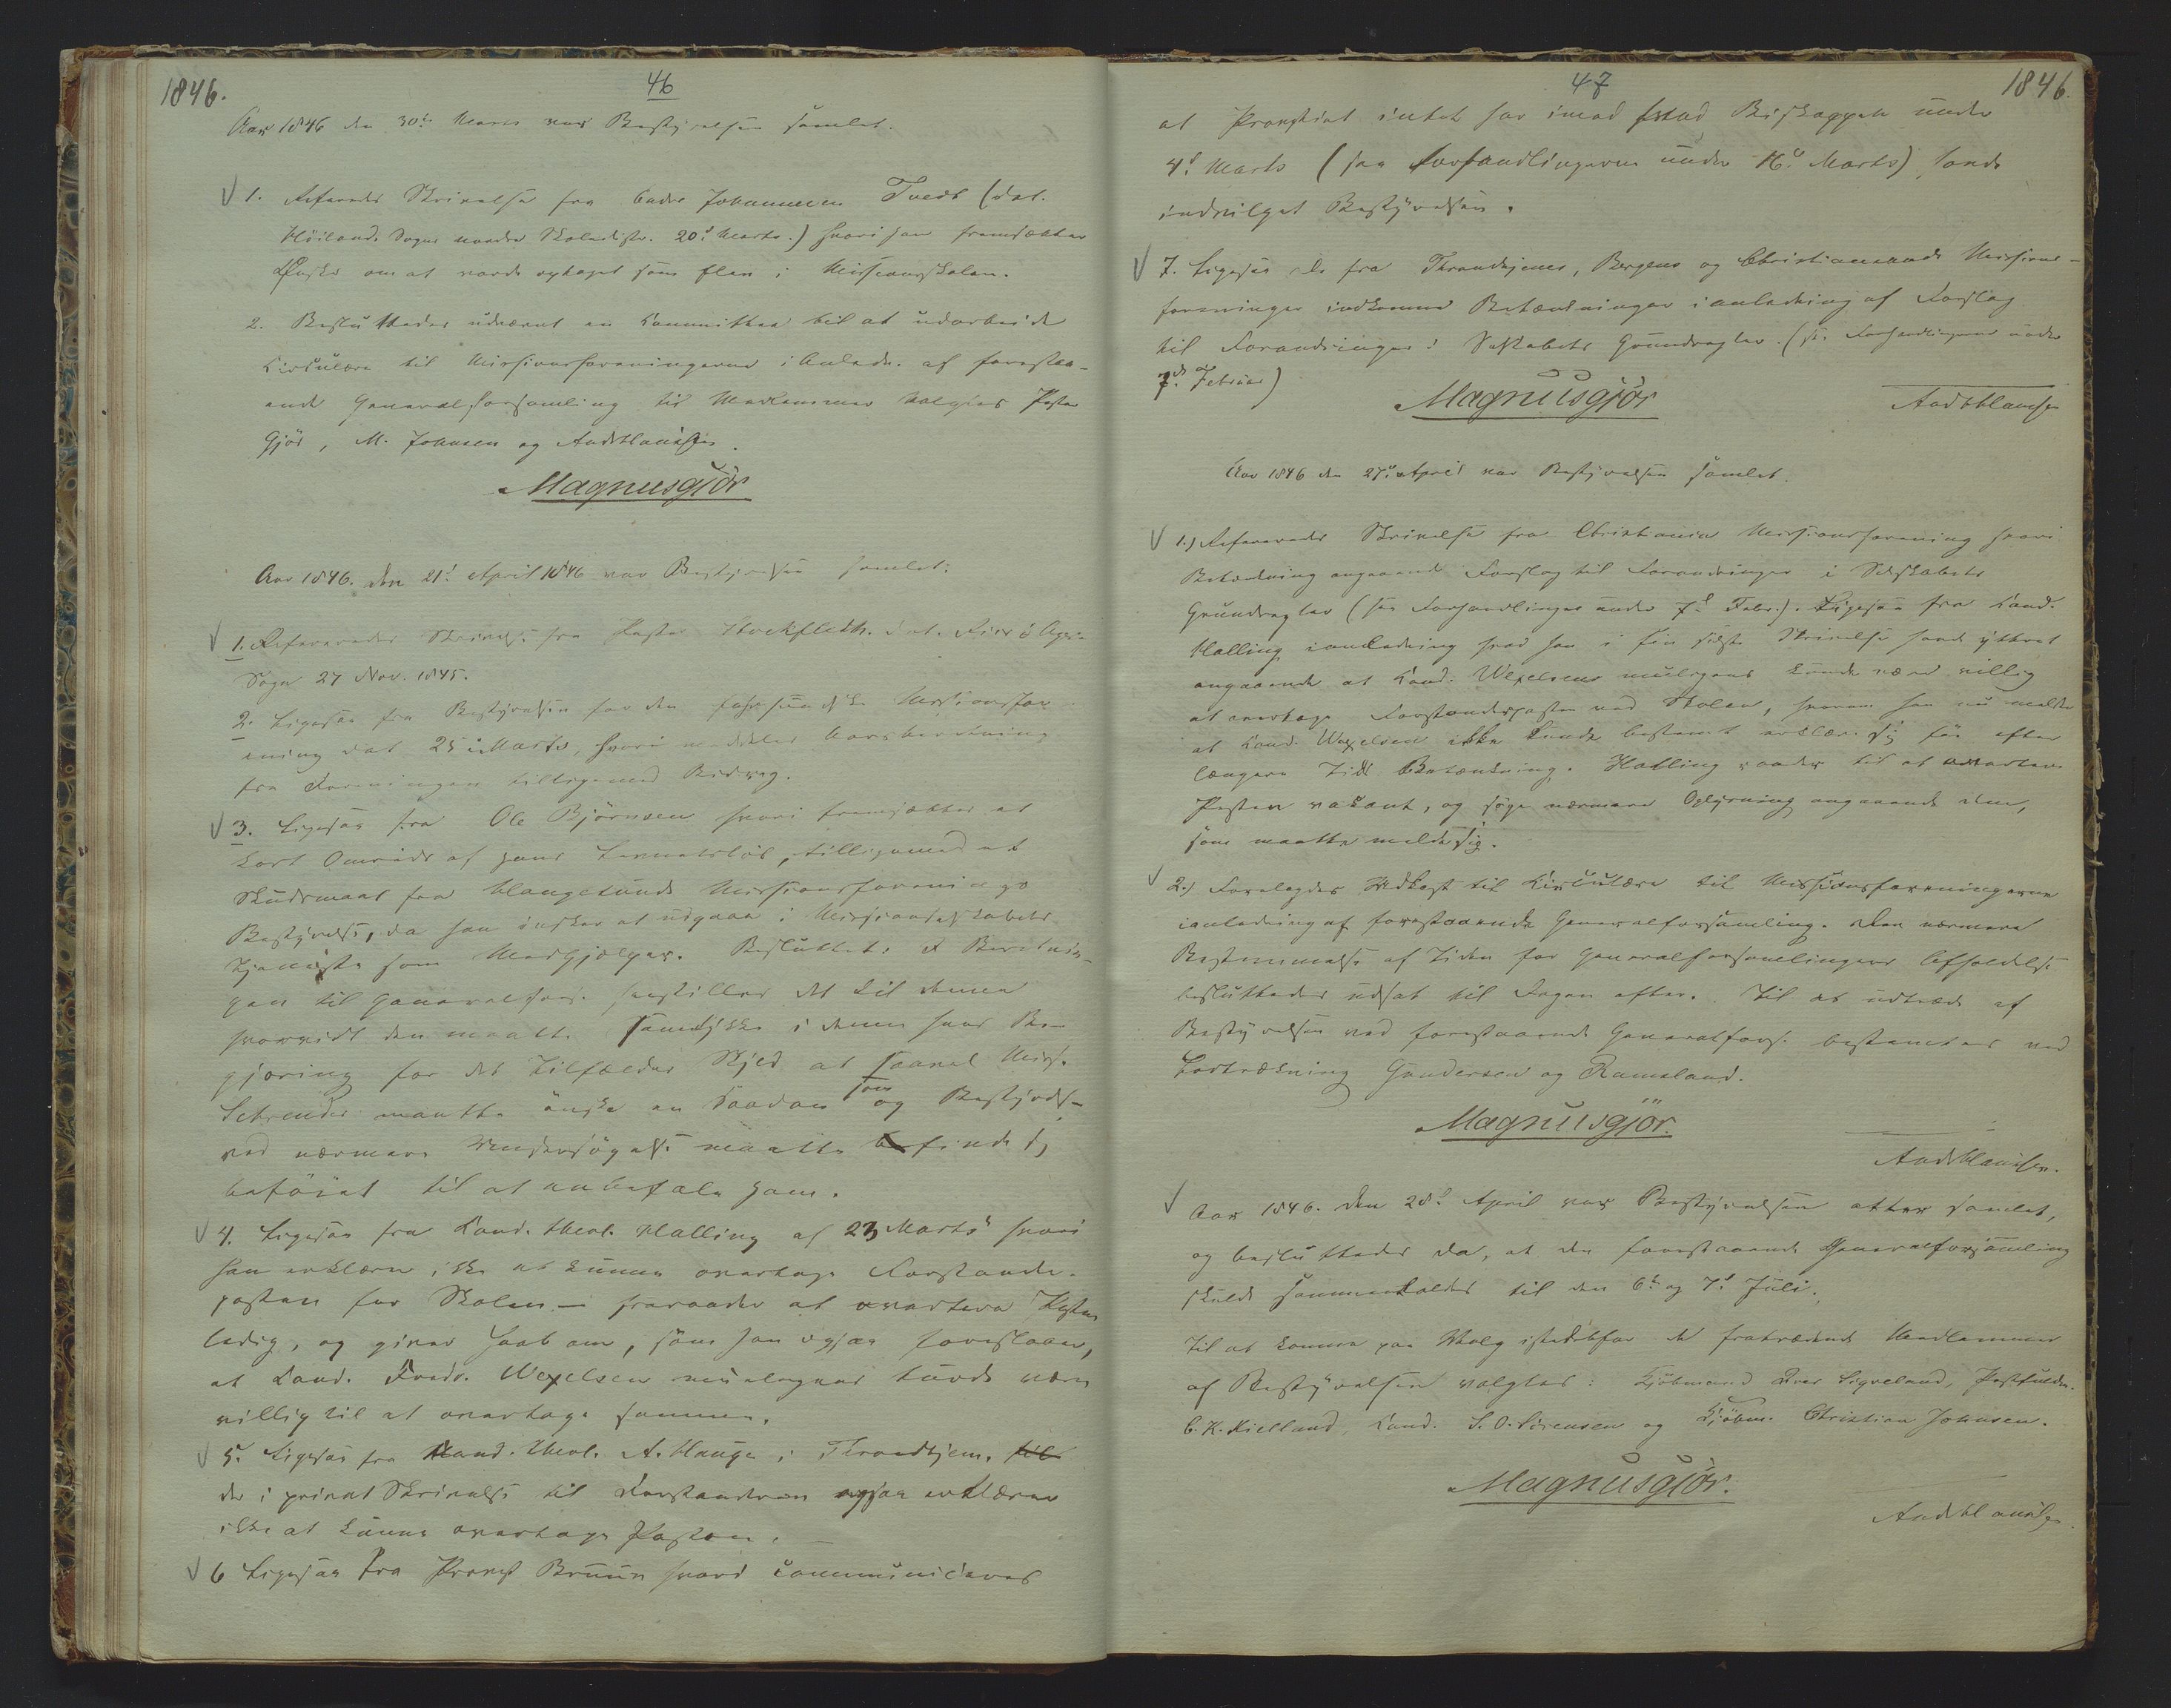 1846.
46
Aar 1846 den 30te Marts var Bestyrelsen samlet.
1. Refereredes Skrivelse fra Endre Johannesen Tvedt (dat.
Höilands Sogns nordre Skoledistr. 20d Marts.) hvori han fremsætter
Ønske om at vorde optaget som Elev i Missionsskolen.
2. Besluttedes udnævnt en Committee til at udarbeide
Circulære til Missionsforeningerne i Anledn. af forestaa-
ende Generalforsamling til Medlemmer valgtes Pastor
Gjör, M. Johnsen og And. Hauische.
Magnus Gjör
Aar 1846. den 21d April 1846 var Bestyrelsen samlet:
1. Refereredes Skrivelse fra Pastor Stockfleth. dat.
Sogn 27 Nov. 1845.
2. Ligesaa fra Bestyrelsen for den Missionsfor-
ening dat 25 Marts, hvori meddeles Aarsberetning
fra Foreningen tilligemed Bidrag.
3. Ligesaa fra Ole Björnsen hvori fremsættes et
kort Omrids af hans Levnetslöb, tilligemed et
Skudsmaal fra Mangelunds Missionsforenings
Bestyrelse, da han ønsker at udgaae i Missionsselskabets
Tjeneste som Medhjælper. Besluttet: I Beretnin-
gen til Generalfors. henstilles det til denne
hvorvidt den maatte samtykke i denne hans Be-
gjæring for det Tilfældes Skyld at saavel Miss.
Schreuder maatte önske en saadan som og Bestyrels.
ved nærmere Undersögelse maatte befinde sig
beföiet til at anbefale ham.
4. Ligesaa fra Cand. theol. Halling af 23 Marts hvori
han erklærer ikke at kunne overtage Forstander-
posten for Skolen – fraraader at avertere Posten
ledig, og giver Haab om, som han ogsaa foreslaaer,
at Cand. Fredr. Wexelsen mueligens turde være
villig til at overtage samme.
5. Ligesaa fra Cand. theol. A. Hauge i Throndhjem. til
der i privat Skrivelse til Forstanderen ogsaa erklærer
ikke at kunne overtage Posten.
6 Ligesaa fra Provst Bruun hvori communiceres
47
1846.
at Provstiet intet har imod hvad Biskoppen under
4d Marts (see Forhandlingerne under 16d Marts) havde
indvilget Bestyrelsen.
7. Ligesaa de fra Throndhjems, Bergens og Christianssands Missions-
foreninger indkomne Betænkninger i anledning af Forslag
til Forandringer i Selskabets Grundregler. (se Forhandlingerne under
7de Februar)
Magnus Gjör
And. Hauische
Aar 1846 den 27d April var Bestyrelsen samlet.
1.) Refereredes Skrivelse fra Christiania Missionsforening hvori
Betænkning angaaende Forslag til Forandringer i Selskabets
Grundregler (see Forhandlinger under 7d Febr.). Ligesaa fra Cand.
Halling i anledning hvad han i sin sidste Skrivelse havde yttret
angaaende at Cand. Wexelsens muligens kunde være villig
at overtage Forstanderposten ved Skolen, hvorom han nu melder
at Cand. Wexelsen ikke kunde bestemt erklære sig før efter
længere Tids Betænkning. Halling raader til at avertere
Posten vakant, og søge nærmere Oplysning angaaende dem,
som maatte melde sig.
2.) Forelagdes Udkast til Circulære til Missionsforeningerne
i anledning af forestaaende Generalforsamling. Den nærmere
Bestemmelse af Tiden for Generalforsamlingens Afholdelse
besluttedes udsat til Dagen efter. Til at udtræde af
Bestyrelsen ved forestaaende Generalfors. bestemtes ved
Lodtrækning Gundersen og Ramsland.
Magnus Gjör.
And. Hauische.
Aar 1846. den 28d April var Bestyrelsen atter samlet,
og besluttedes da, at den forestaaende Generalforsamling
skulde sammenkaldes til den 6te og 7d Juli.
Til at komme paa Valg istedetfor de fratrædende Medlemmer
af Bestyrelsen valgtes: Kjöbmand Iver Sigveland, Postfuldm.
C. K. Kielland, Cand. S. O. Sörensen og Kjöbm. Christian Johnsen.
Magnus Gjör.
And. Hauische.